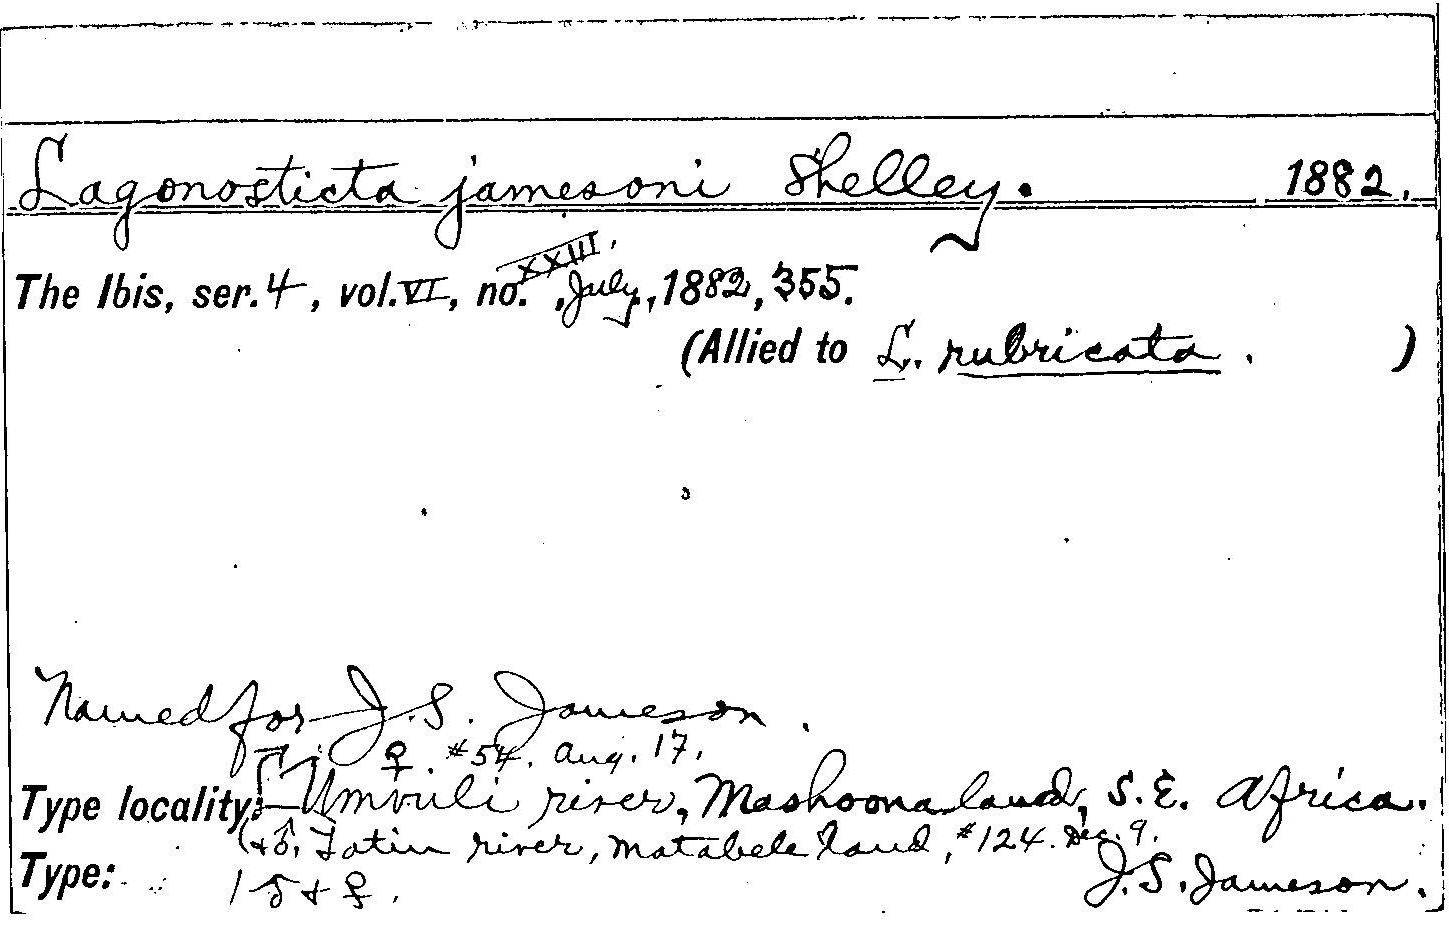 Lagonosticta jamesoni Shelley. 1882.
The Ibis, ser. 4, vol. VI, no. XXIII, July, 1882, 355.
(Allied to L. rubricata. )
Named for J. S. Jameson.
♀. #54. Aug. 17.
Type locality: Umvuli river, Mashoona land, S.E. Africa.
(+ ♂, Tatin river, Matabele land, #124. Dec. 9.
Type: 1 ♂ + ♀. J. S. Jameson.